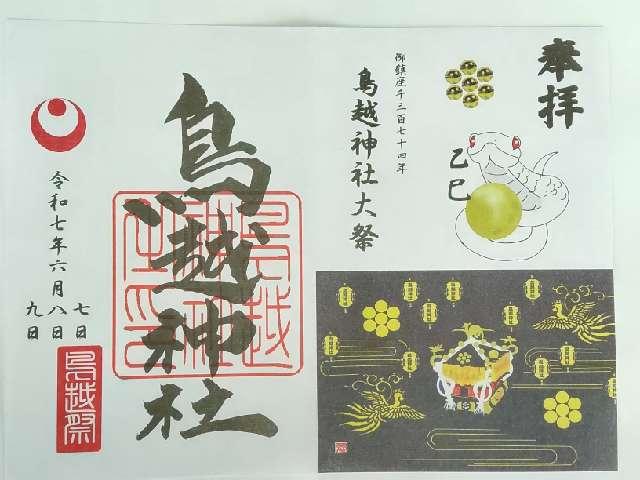 奉拝
乙巳
御鎮座千三百七十四年
鳥越神社大祭
鳥越神社
鳥越神社之印
令和七年六月
七日
八日
九日
鳥越祭